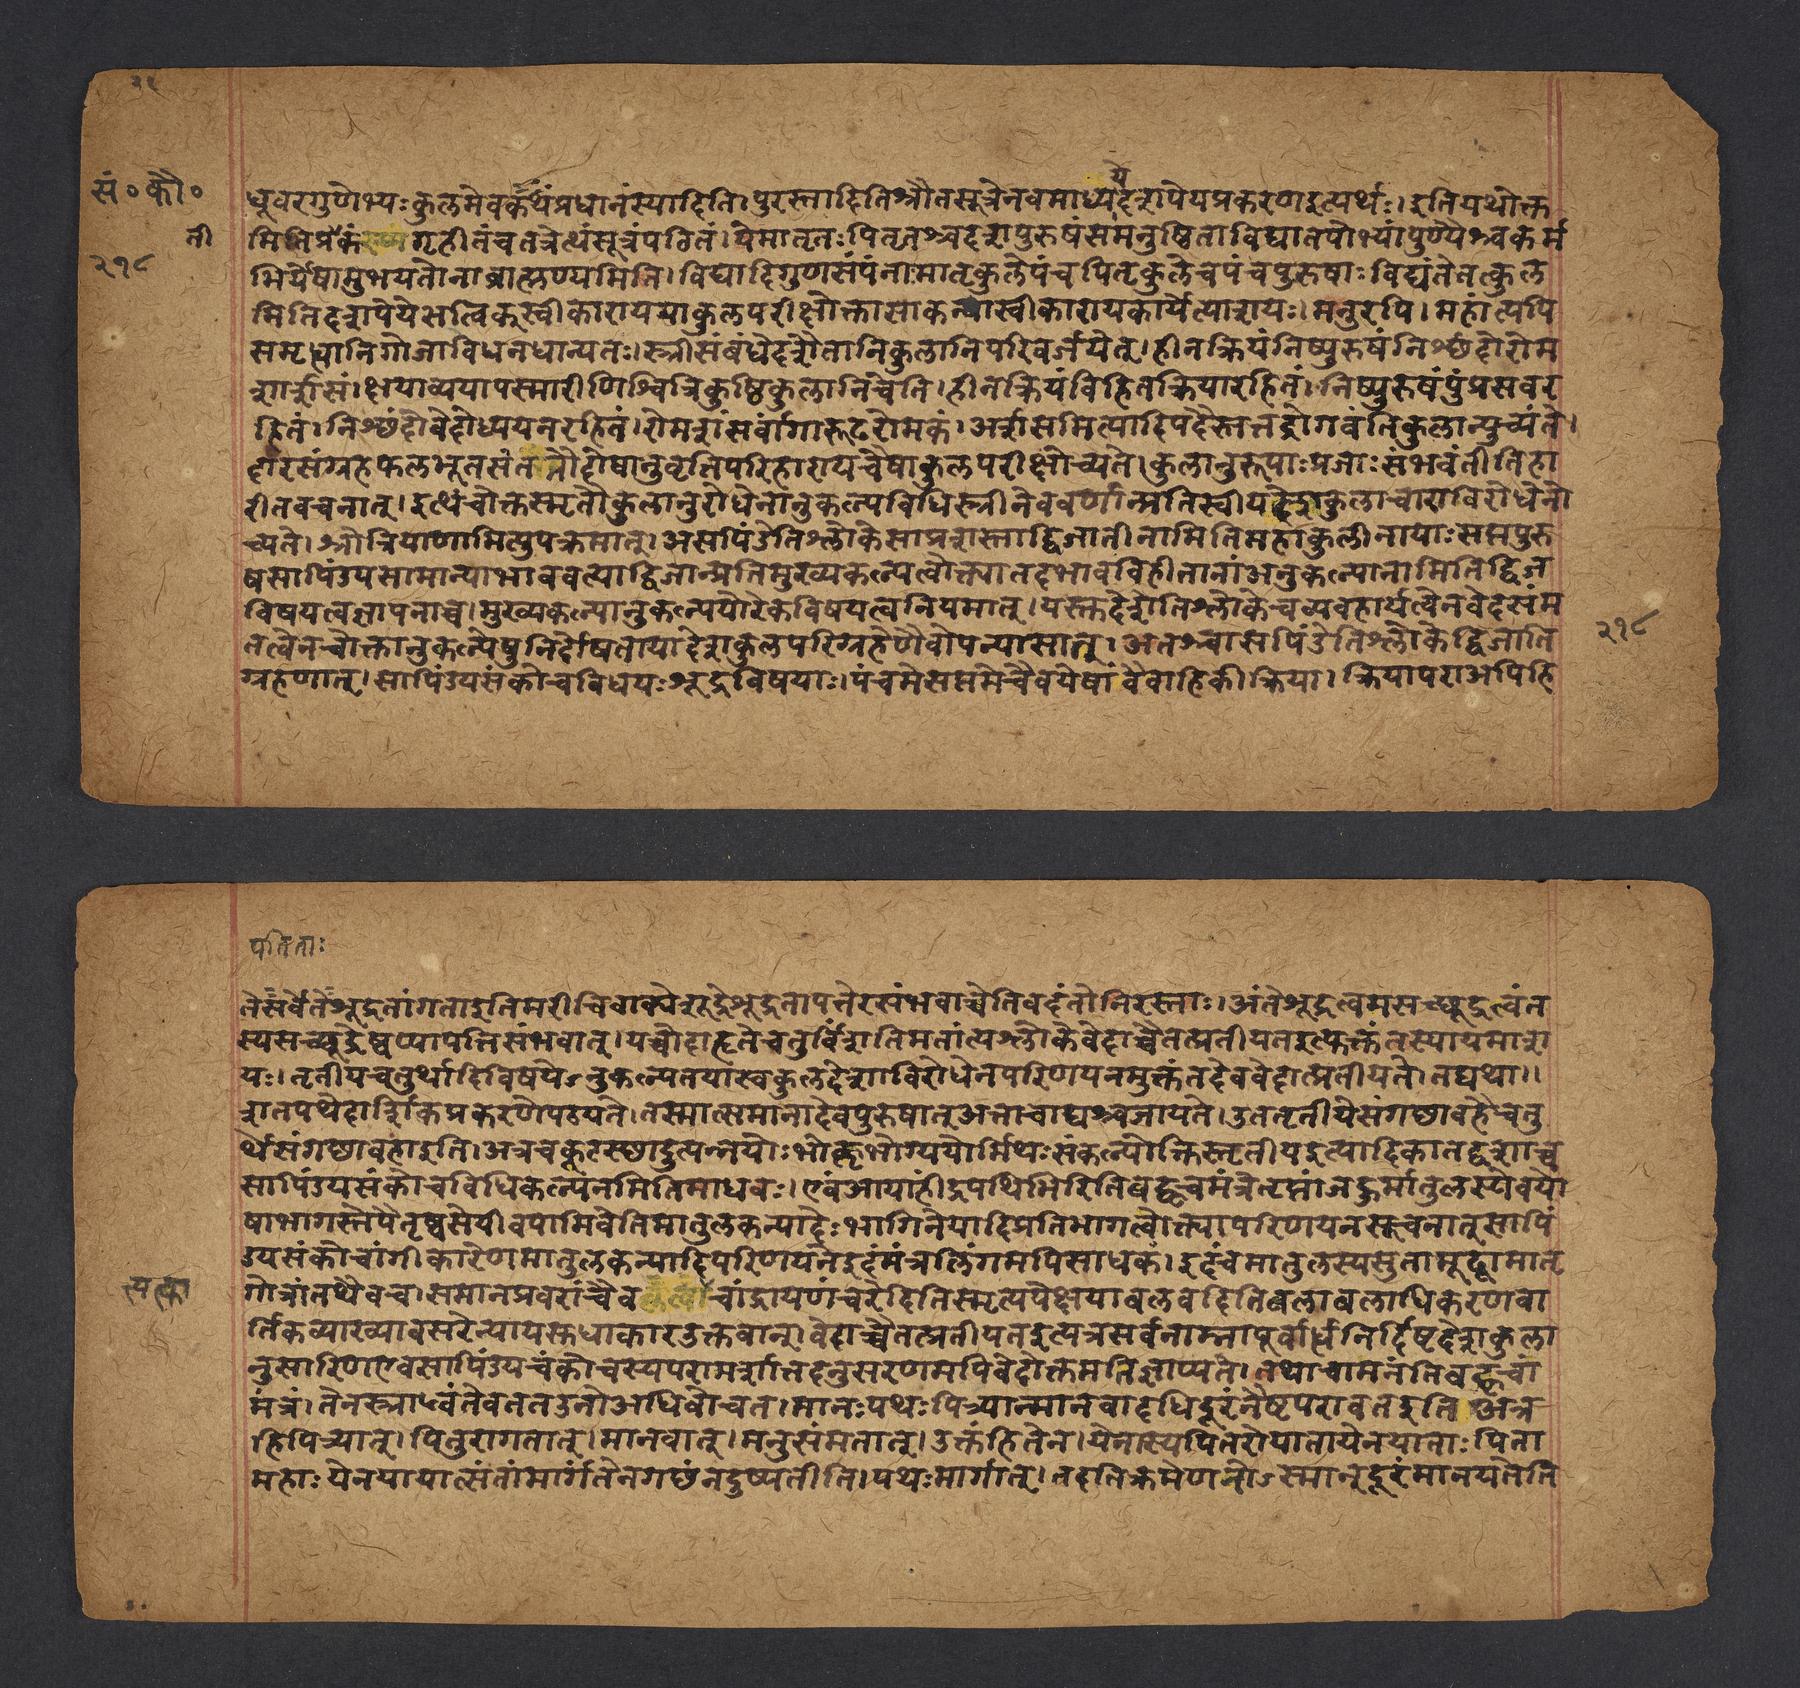 सं॰कौ॰
ती
२१८
धूवरगुणेभ्यःकुलमेवकथंप्रधानंस्यादिति।पुरस्तादितिश्रौतसूत्रेनवमाध्यायेदशपेयप्रकरणइत्यर्थः।इतियथोक्त
मितिप्रकं गृहीतंचतत्रेत्थंसूत्रंपठितं।येमातृतःपितृतश्चदशपुरुषंसमनुष्ठिताविद्यातपोभ्यांपुण्यैश्चकर्म
भिर्येषामुभयतोनाब्राह्मण्यमिति।विद्यादिगुणसंपंनामातृकुलेपंचपितृकुलेचपंचपुरुषाःविद्यंतेतत्कुल
मितिदशपेयेभत्विक्स्वीकारायय़ाकुलपरीक्षोक्तासाकन्यास्वीकारायकार्येत्याशयः।मनुरपि।महांत्यपि
समृद्धानिगोजाविधनधान्यतः।स्त्रीसंबंधेदशैतानिकुलानिपरिवर्जयेत्।हीनक्रियंनिष्पुरुषंनिश्छंदोरोम
शार्शसं।क्षयाव्ययापस्मारीणिश्वित्रिकुष्ठिकुलानिचेति।हीनक्रियंविहितक्रियारहितं।निष्पुरुषंपुंप्रसवर
हितं।निश्छंदोवेदोध्ययनरहितं।रोमशंसर्वांगारूढरोमकं।अर्शसमित्यादिपदैस्तत्तद्रोगवंतिकुलान्युच्यंते।
दारसंग्रहफलभूतसंततौदोषानुवृत्तिपरिहारायचैषाकुलपरीक्षोच्यते।कुलानुरूपाःप्रजाःसंभवंतीतिहा
रीतवचनात्।इत्थंचोक्तस्मृतौकुलानुरोधेनानुकल्पविधिस्त्रीनेववर्णान्प्रतिस्वीयदेशकुलाचाराविरोधेनो
च्यते।श्रोत्रियाणामित्युपक्रमात्।असपिंडेतिश्लोकेसाप्रशस्ताद्विजातीनामितिमहाकुलीनायाःसप्तपुरु
षसापिंड्यसामान्याभाववत्याद्विजान्प्रतिमुख्यकल्पत्वोक्त्यातदभावविहीतानांअनुकल्पानामितिद्विज
विषयत्वज्ञापनाच्च।मुख्यकल्पानुकल्पयोरेकविषयत्वनियमात्।यस्तुदेशेतिश्लोकेचव्यवहार्यत्वेनवेदसंम
तत्वेनचोक्तानुकल्पेषुनिर्दोषतायादेशकुलपरिग्रहेणैवोपन्यासात्।अतश्चासपिंडेतिश्लोकेद्विजाति
ग्रहणात्।सापिंड्यसंकोचविधयःशूद्रविषयाः।पंचमेसप्तमेचैवयेषांवैवाहिकीक्रिया।क्रियापराअपिहि
२१८
पतिताः
तेसर्वेतेशूद्रतांगताइतिमरीचिवाक्येशूद्रेशूद्रतापत्तेरसंभवाच्चेतिवदंतोनिरस्ताः।अंतेशूद्रत्वमसच्छूद्रत्वंत
स्यसच्छूद्रेष्वप्यापत्तिसंभवात्।यच्चोदाहृतेचतुर्विंशतिमतांत्यश्लोकेवेदाच्चैतत्प्रतीयतइत्युक्तंतस्यायमाश
यः।तृतीयचतुर्थादिविषयेऽनुकल्पतयास्वकुलदेशाविरोधेनपरिणयनमुक्तंतदेववेदात्प्रतीयते।तद्यथा।।
शतपथेदार्शिकप्रकरणेपठ्यते।तस्मात्समानादेवपुरुषात्अत्ताचाद्यश्चजायते।उततृतीयेसंगछावहैचतु
र्थेसंगछावहाइति।अत्रचकूटस्छादुत्पन्नयोःभोक्तृभोग्ययोर्मिथःसंकल्पोक्तिस्तृतीयइत्यादिकातद्वशाच्च
सापिंड्यसंकोचविधिकल्पनमितिमाधवः।एवंआयाहींद्रपथिभिरितिबह्वृचमंत्रेतृप्तांजहुर्मातुलस्येवयो
षाभागस्तेपैतृष्वसेयीवपामिवेतिमातुलकन्यादेःभागिनेयादिप्रतिभागत्वोक्त्यापरिणयनसूचनात्सापिं
ड्यसंकोचांगीकारेणमातुलकन्यादिपरिणयनेइदंमंत्रलिंगमपिसाधकं।इदंचमातुलस्यसुतामूढ्वामातृ
गोत्रांतथैवच।समानप्रवरांचैव चांद्रायणंचरेदितिस्मृत्यपेक्षयाबलवदितिबलाबलाधिकरणवा
त्यक्त्वा
र्तिकव्याख्यावसरेन्यायसुधाकारउक्तवान्।वेदाच्चैतत्प्रतीयतइत्यत्रसर्वनाम्नापूर्वार्धनिर्दिष्टदेशकुला
नुसारिणएवसापिंड्यचंकोचस्यपरामर्शात्तदनुसरणमपिवेदोक्तमतिज्ञाप्यते।तथाचामनंतिबह्वृचां
मंत्रं।तेनस्त्राध्वंतेवततउनोअधिवोचत।मानःपथःपित्र्यान्मानवादधिदूरंनैष्टपरावतइति अत्र
हिपित्र्यात्।पितुरागतात्।मानवात्।मनुसंमतात्।उक्तंहितेन।येनास्यपितरोयातायेनयाताःपिता
महाः येनयायात्संतांमार्गंतेनगछंनदुष्यतीति।पथःमार्गात्।तदतिक्रमेणनोऽस्मान्दूरंमानयतेति